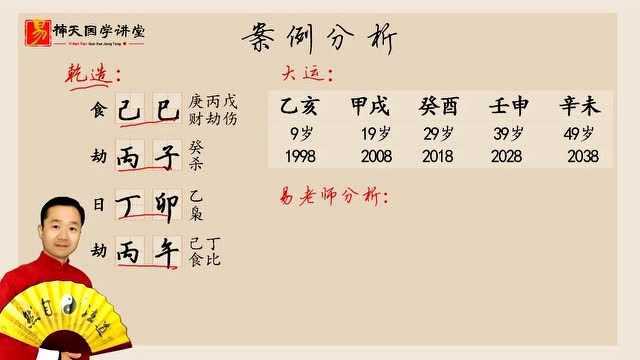 易 楠天国学讲堂
案例分析
乾造：
食 己 巳 庚丙戊
财劫伤
劫 丙 子 癸
杀
日 丁 卯 乙
枭
劫 丙 午 己丁
食比
大运：
乙亥 甲戌 癸酉 壬申 辛未
9岁 19岁 29岁 39岁 49岁
1998 2008 2018 2028 2038
易老师分析：
道法自然